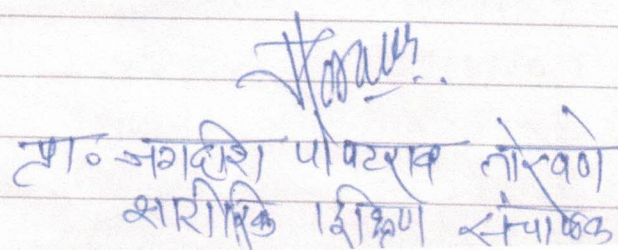 प्रा. जगदीश पोपटराव तोरवणे
शारीरिक शिक्षण संचालक